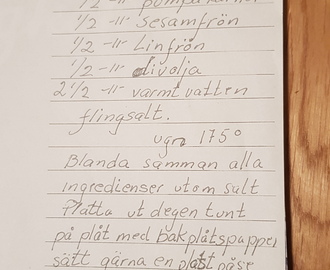 1/2 -11- pumpakärnor
1/2 -11- Sesamfrön
1/2 -11- Linfrön
1/2 -11- olivolja
2 1/2 -11- varmt vatten
flingsalt.
ugn 175°
Blanda samman alla
ingredienser utom salt
Platta ut degen tunt
på plåt med bakplåtspapper
sätt gärna en plast påse